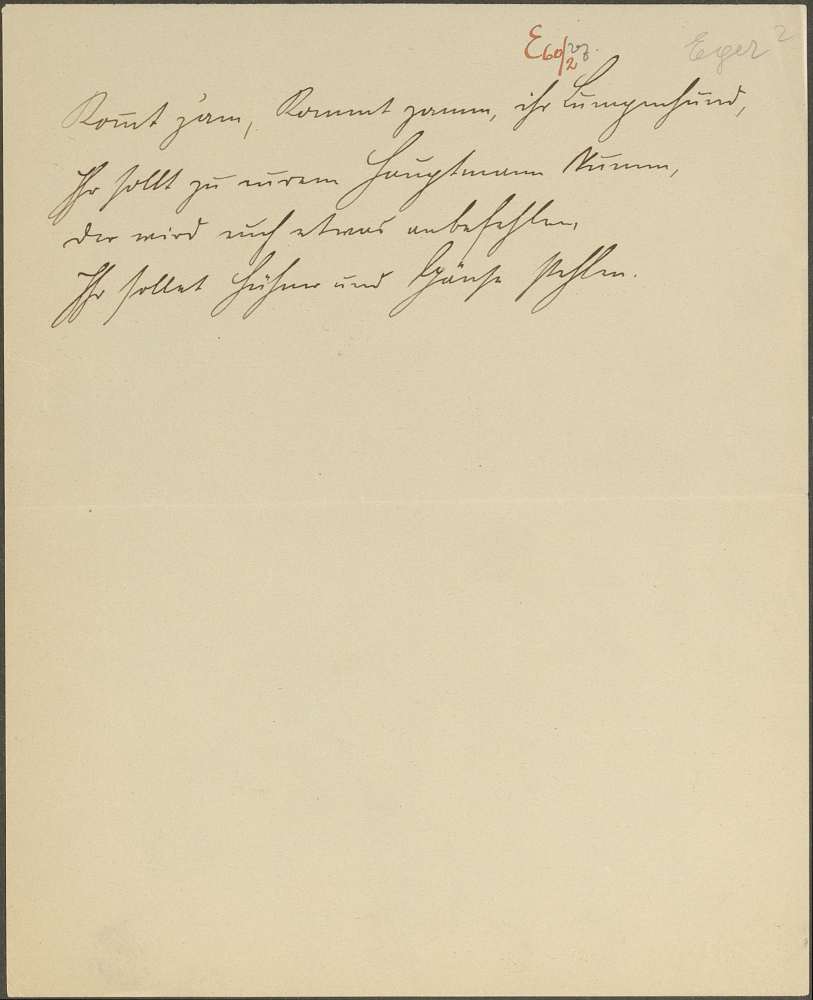 E60/2
Eger 2
Kom̅t z'am, Kommt zamm, ihr Lumpenhund,
Ihr sollt zu eurem Hauptmann Kumm,
der wird euch etwas anbefehlen,
Ihr sollet Hühner und Gänse stehlen.